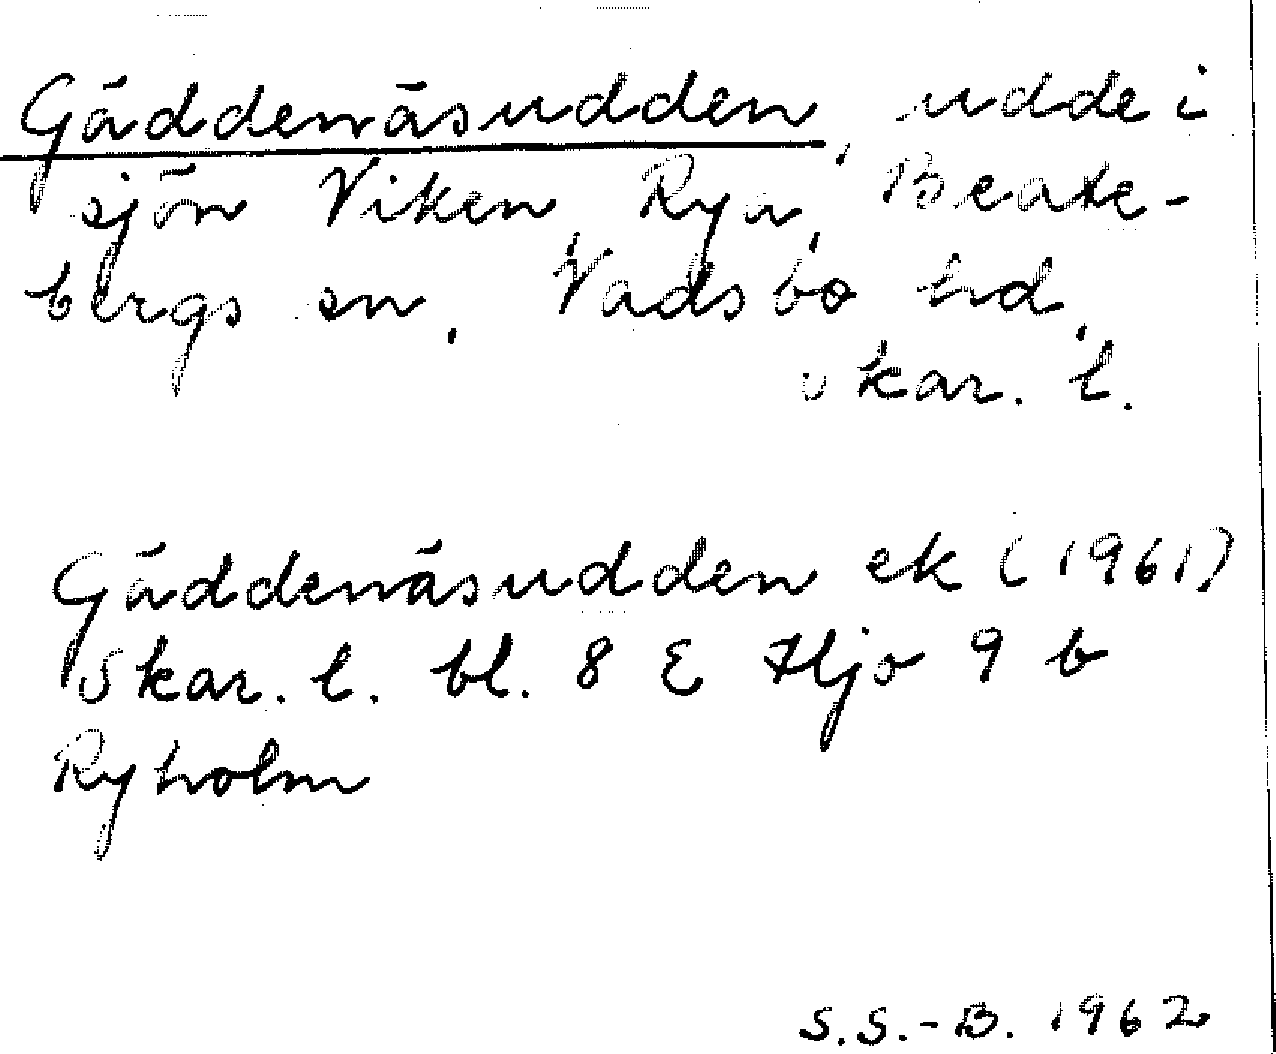 Gäddenäsudden, udde i
sjön Viken, Rya, Beate-
bergs sn, Vadsbo hd,
Skar. l.
Gäddenäsudden ek (1961)
Skar. l. bl. 8 E Hjo 9 b
Ryholm
S.S.-B. 1962